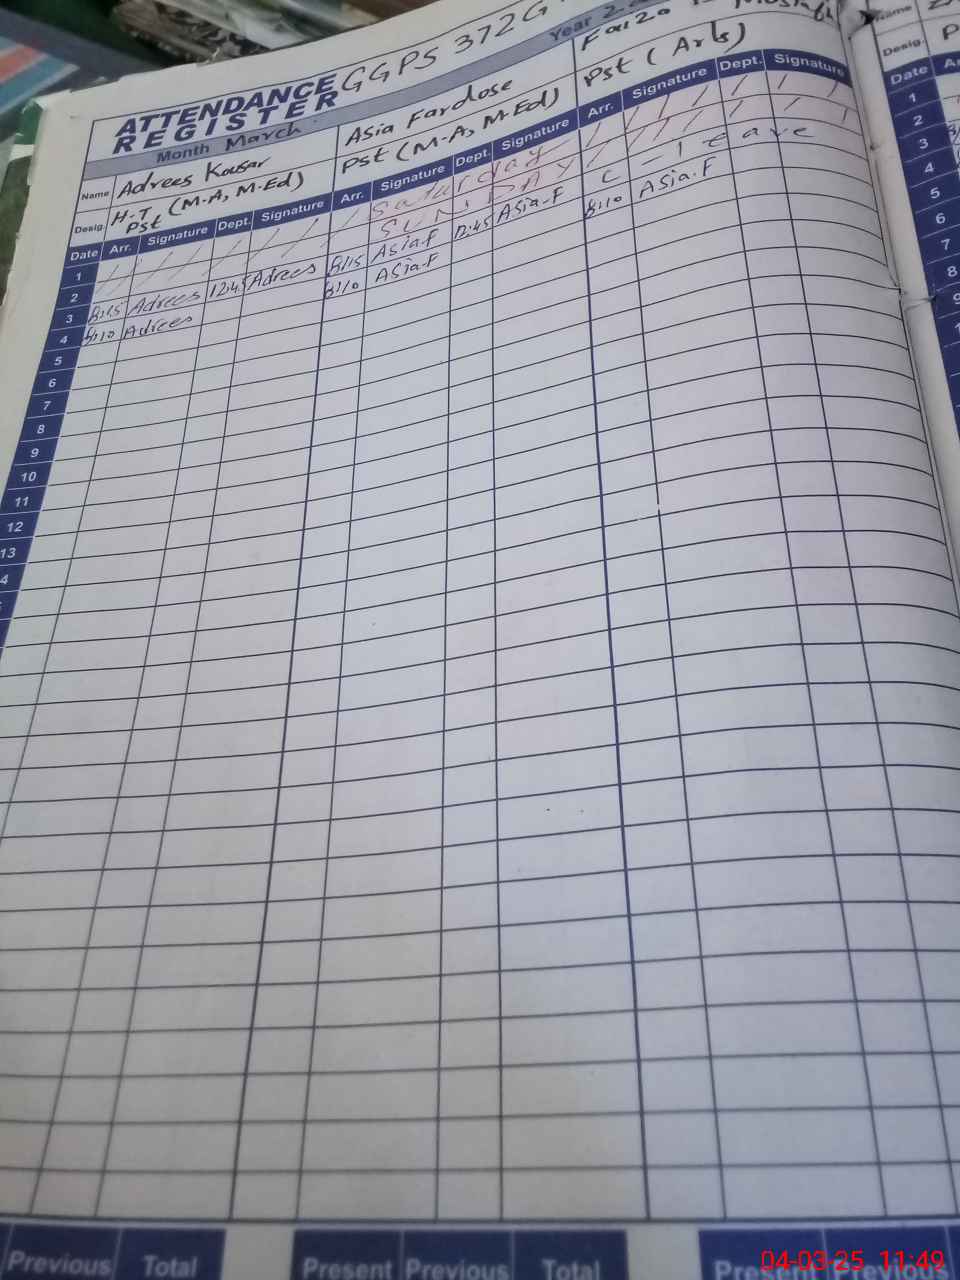 ATTENDANCE GGPS 372 G
REGISTER
Month March Year
Name Adrees Kousar Asia Fardose
Desig. H.T Pst (M.A, M.Ed) Pst (M.A, M.Ed) Pst (Arts)
Date Arr. Signature Dept. Signature Arr. Signature Dept. Signature Arr. Signature Dept. Signature
1 Saturday
2 SUNDAY
3 8:15 Adrees 12:45 Adrees 8:15 Asia.F 12:45 Asia.F C - l e a v e
4 8:10 Adrees 8:10 Asia.F 8:10 Asia.F
5
6
7
8
9
10
11
12
13
4
Previous Total Present Previous Total Present Previous
Name
Desig. P
Date Ar
1
2
3
4
5
6
7
8
9
1
04-03-25 11:49